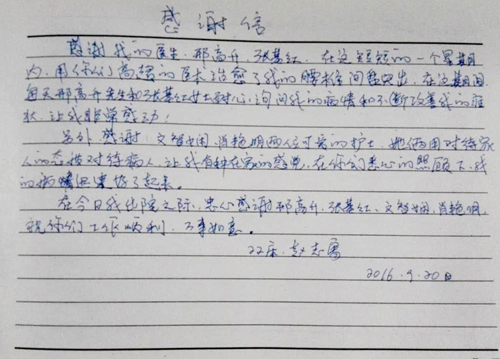 感谢信
感谢我的医生:邢高升、张慧红、在这短短的一个星期
内,用你们高超的医术治愈了我的腰椎间盘突出,在这期间
每天邢高升先生和张慧红女士耐心询问我的病情和不断改善我的症
状,让我非常感动!
另外感谢:文智娴、肖艳明两位可爱的护士,她俩用对待家
人的态度对待病人,让我有种在家的感觉,在你们悉心的照顾下,我
的病情好了起来。
在今日我出院之际,忠心感谢邢高升、张慧红、文智娴、肖艳明,
祝你们工作顺利,万事如意。
22床:赵志
2016.9.20日